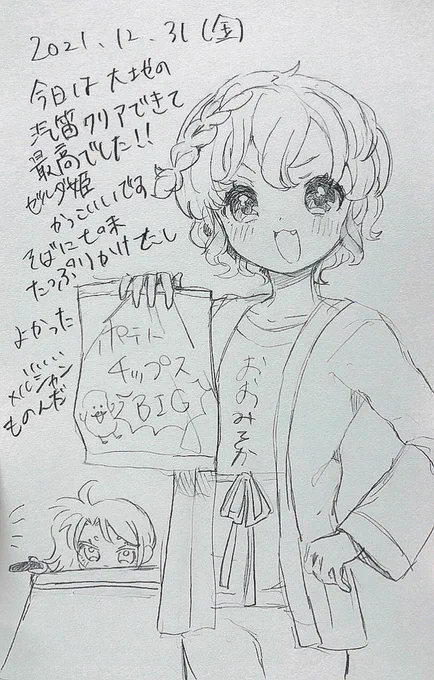 2021.12.31(金)
今日は大地の
汽笛クリアできて
最高でした!!
ゼルダ姫
かっこいいです
そばに七味
たっぷりかけたし
よかった
メルシャン
ものんだ
ポテト
チップス
BIG
おおみそか